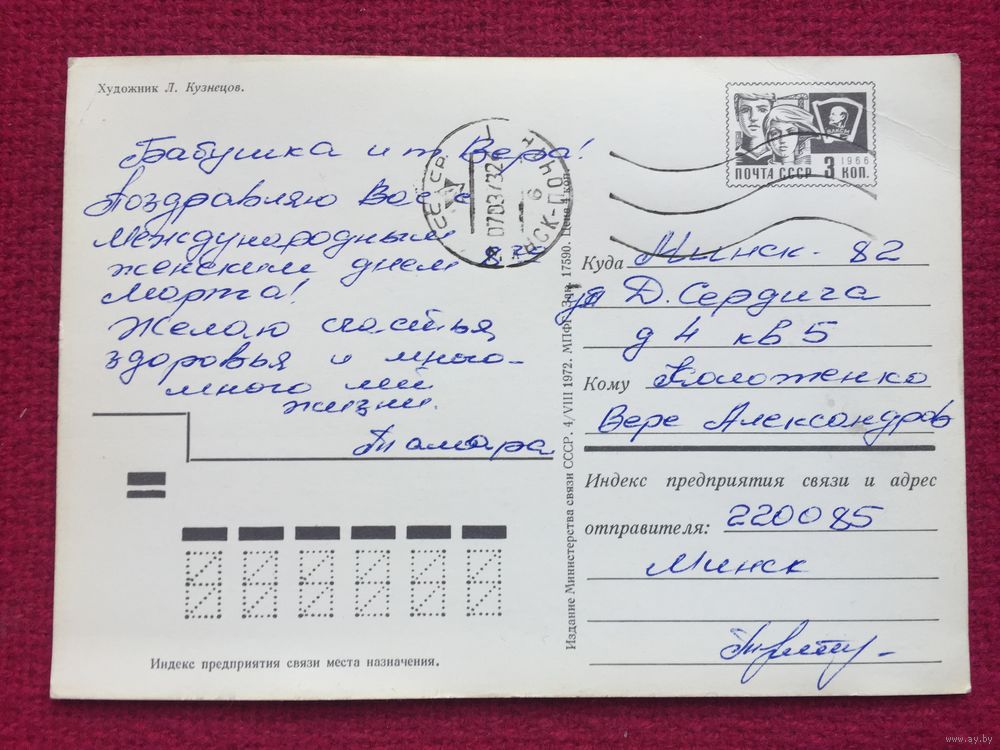 Художник Л. Кузнецов.
Бабушка и т. Вера!
Поздравляю Вас с
Международным
женским днем 8 го
Марта!
Желаю счастья,
здоровья и много-
много лет
жизни.
Тамара
СССР
070373
ПОЧТА СССР 3 КОП.
1966
ВЛКСМ
Куда Минск - 82
ул Д. Сердича
д 4 кв 5
Кому Коложенко
Вере Александров
Индекс предприятия связи и адрес
отправителя: 220085
Минск
Издание Министерства связи СССР. 4/VIII 1972. МПФГ. Зак. 17590. Цена 4 коп.
Индекс предприятия связи места назначения.
www.ay.by